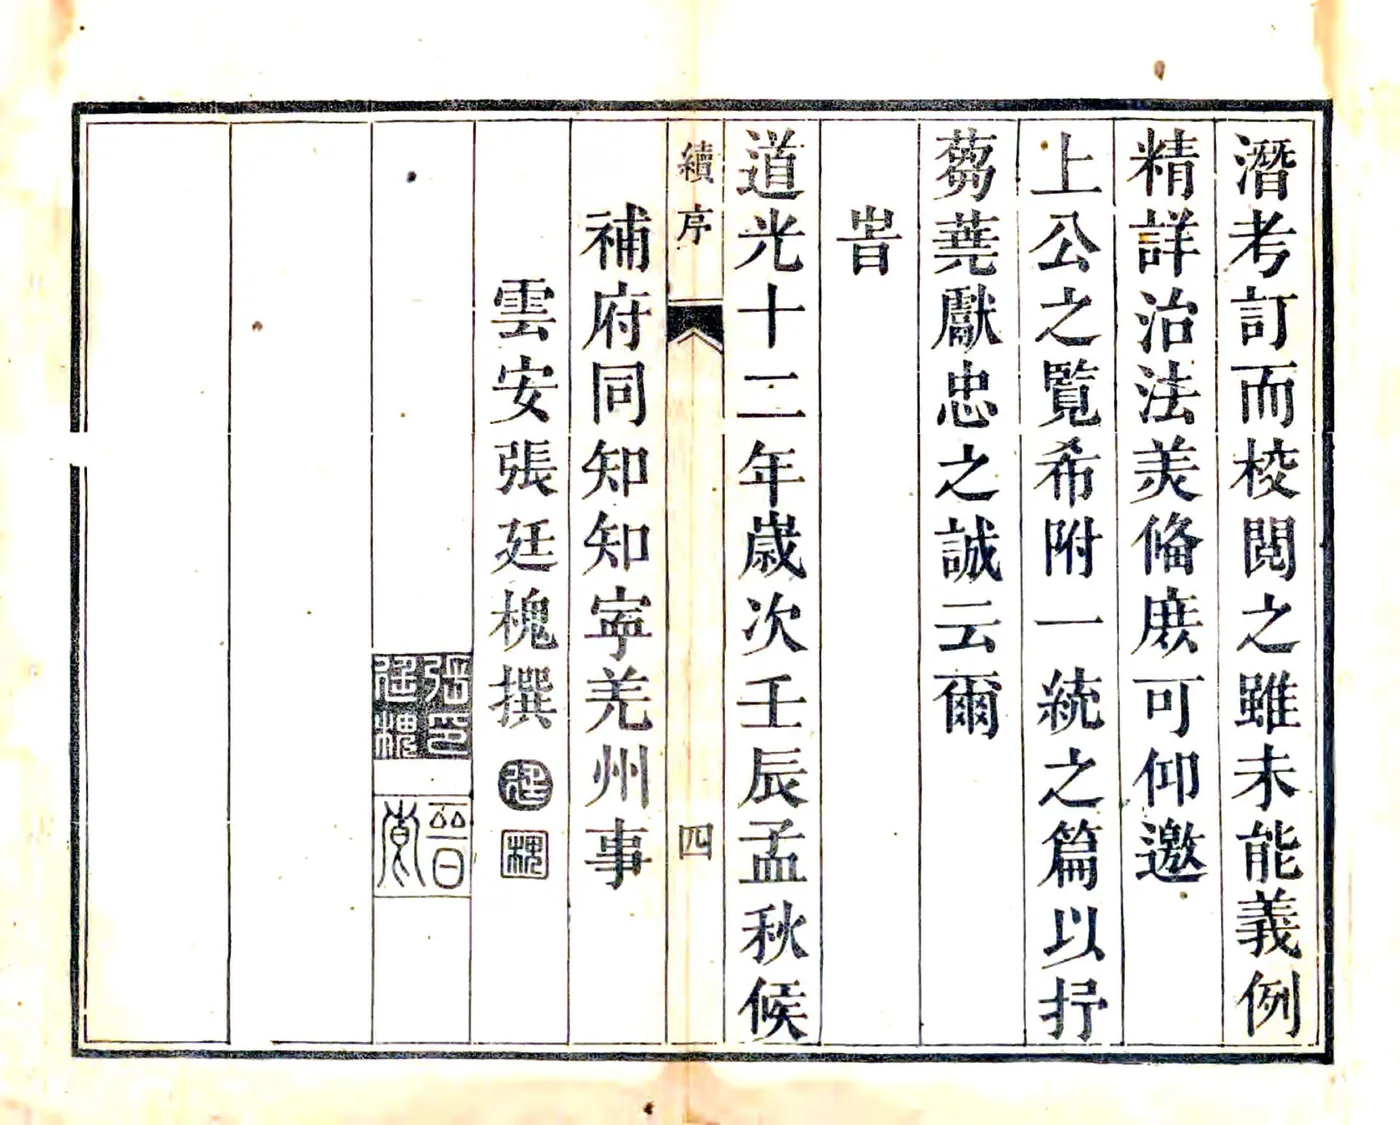 潛考訂而校閱之雖未能義例
精詳治法美偹庻可仰邀
上公之覧希附一統之篇以抒
蒭蕘獻忠之誠云爾
旹
道光十二年歲次壬辰孟秋候
續序
四
補府同知知寜羌州事
雲安張廷槐撰
廷
槐
張印廷槐
晉